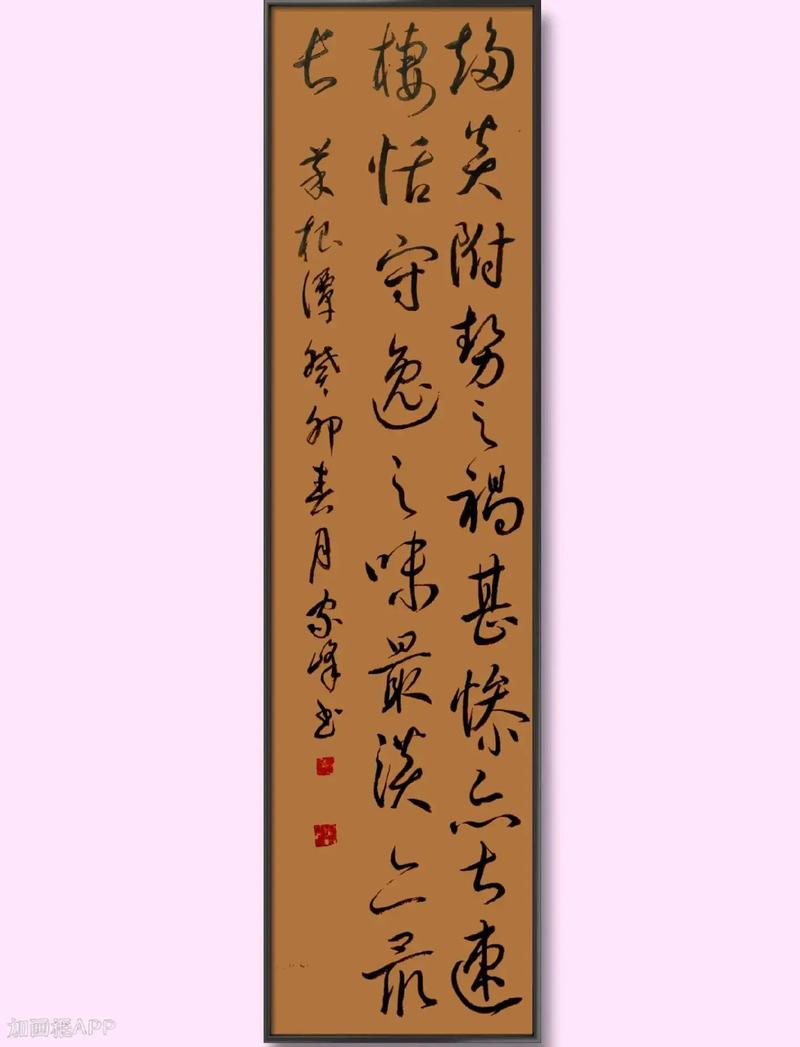 趋炎附势之祸甚惨亦甚速
棲恬守逸之味最淡亦最
长
菜根潭癸卯春月家峰书
加画框APP